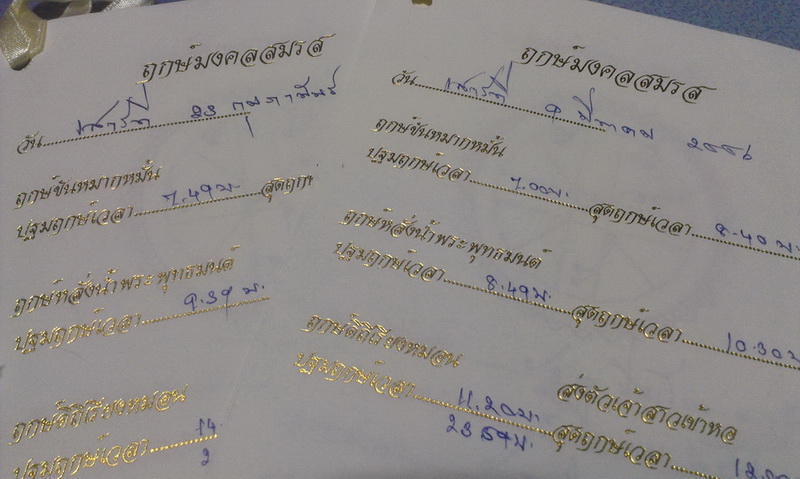 ฤกษ์มงคลสมรส
วัน เสาร์ที่ 23 กุมภาพันธ์
ฤกษ์ขันหมากหมั้น
ปฐมฤกษ์เวลา 7.49 น. สุดฤกษ์
ฤกษ์หลั่งน้ำพระพุทธมนต์
ปฐมฤกษ์เวลา 9.39 น.
ฤกษ์ดิถีเรียงหมอน
ปฐมฤกษ์เวลา 14
ฤกษ์มงคลสมรส
วัน เสาร์ที่ 9 มีนาคม 2556
ฤกษ์ขันหมากหมั้น
ปฐมฤกษ์เวลา 7.00 น. สุดฤกษ์เวลา 8.40 น.
ฤกษ์หลั่งน้ำพระพุทธมนต์
ปฐมฤกษ์เวลา 8.49 น. สุดฤกษ์เวลา 10.30 น
ฤกษ์ดิถีเรียงหมอน ส่งตัวเจ้าสาวเข้าหอ
ปฐมฤกษ์เวลา 11.20 น. สุดฤกษ์เวลา